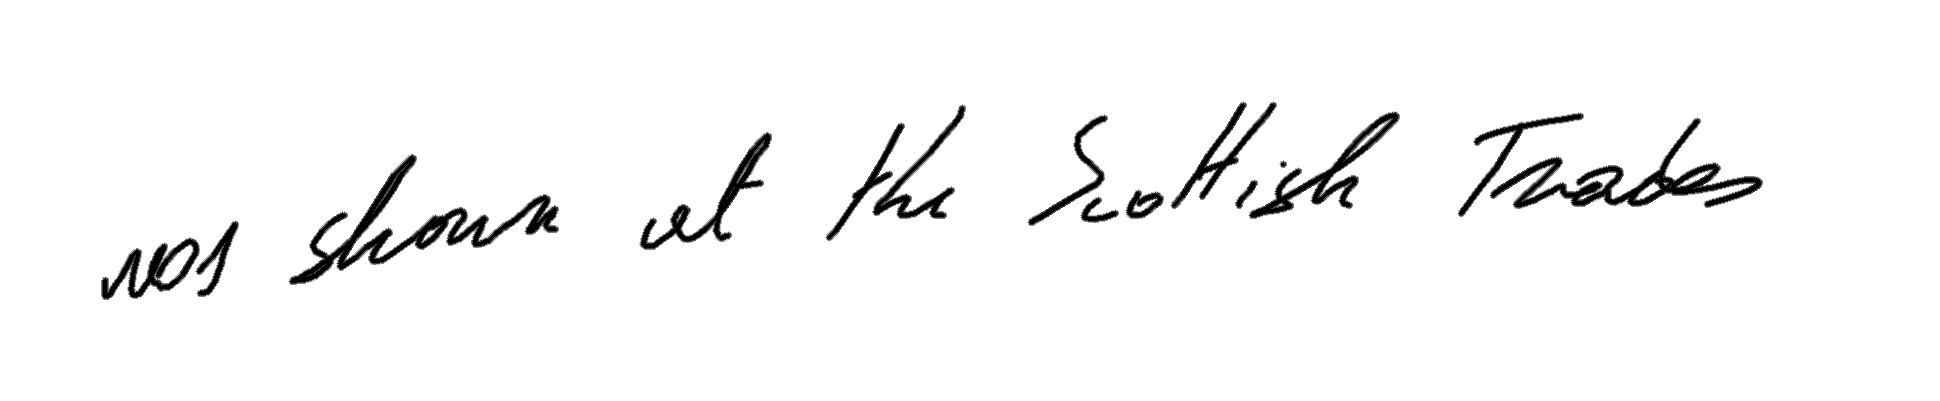 was shown at the Scottish Trades